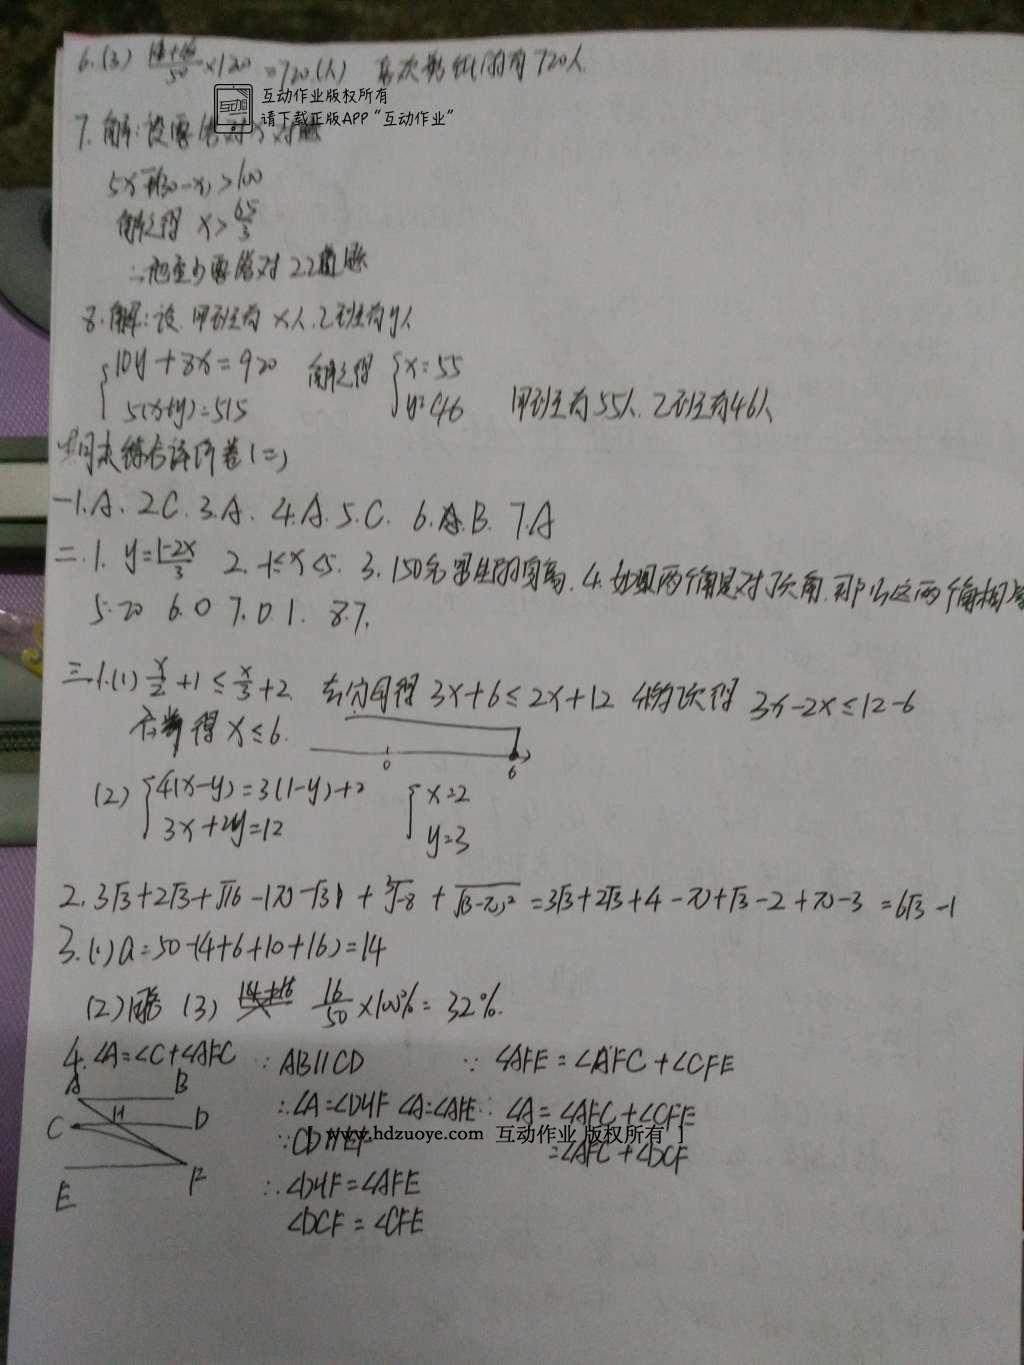 6.(3) /50 ×1200 =720(人) 720人
互动作业版权所有
请下载正版APP“互动作业”
7. 解:设要答对x对题
5x-(30-x)>100
解之得 x>65/3
∴他至少要答对22道题
8.解:设.甲班有x人.乙班有y人
{10y+8x=920 解之得 {x=55
5(x+y)=515 y=46 甲班有55人.乙班有46人
周末练考评价卷(二)
一1.A. 2.C. 3.A. 4.A. 5.C. 6.B. 7.A
二.1. y=1-2x/3 2. -1≤x<5. 3. 150名男生的身高. 4.如果两个角是对顶角.那么这两个角相等
5.20 6.0 7.0.1. 8.7.
三.1.(1) x/2+1≤x/3+2. 去分母得 3x+6≤2x+12 移项得 3x-2x≤12-6
合并得 x≤6.
0 6
(2) {4(x-y)=3(1-y)+2 {x=2
3x+2y=12 y=3
2. 3√3+2√3+√16-|π-√3|+∛-8+√(3-π)² =3√3+2√3+4-π+√3-2+π-3 =6√3-1
3.(1)a=50-(4+6+10+16)=14
(2)略 (3) 16/50×100%=32%.
4. ∠A=∠C+∠AFC ∵AB∥CD ∵ ∠AFE=∠AFC+∠CFE
A B
∴∠A=∠DHF ∠A=∠AFE ∴ ∠A=∠AFC+∠CFE
C H D
∵CD∥EF =∠AFC+∠DCF
[ www.hdzuoye.com 互动作业 版权所有 ]
E F
∴∠DHF=∠AFE
∠DCF=∠CFE